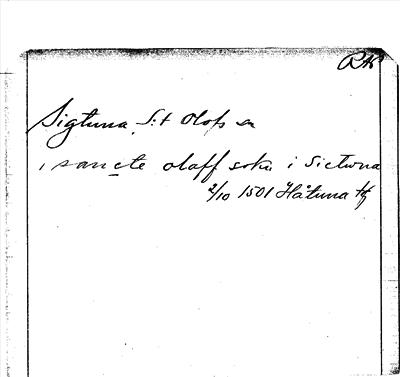 RA
Sigtuna S:t Olofs sn
i sancte olaff sokn i Sictwna
2/10 1501 Håtuna